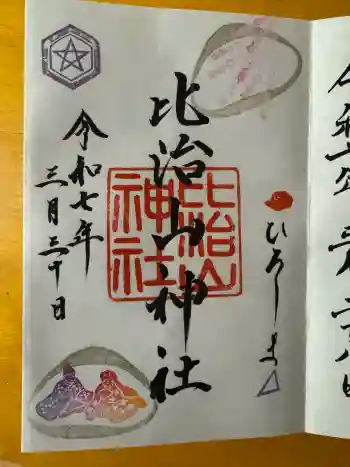 ひろしま
比治山神社
比治山
神社
令和七年
三月三十日